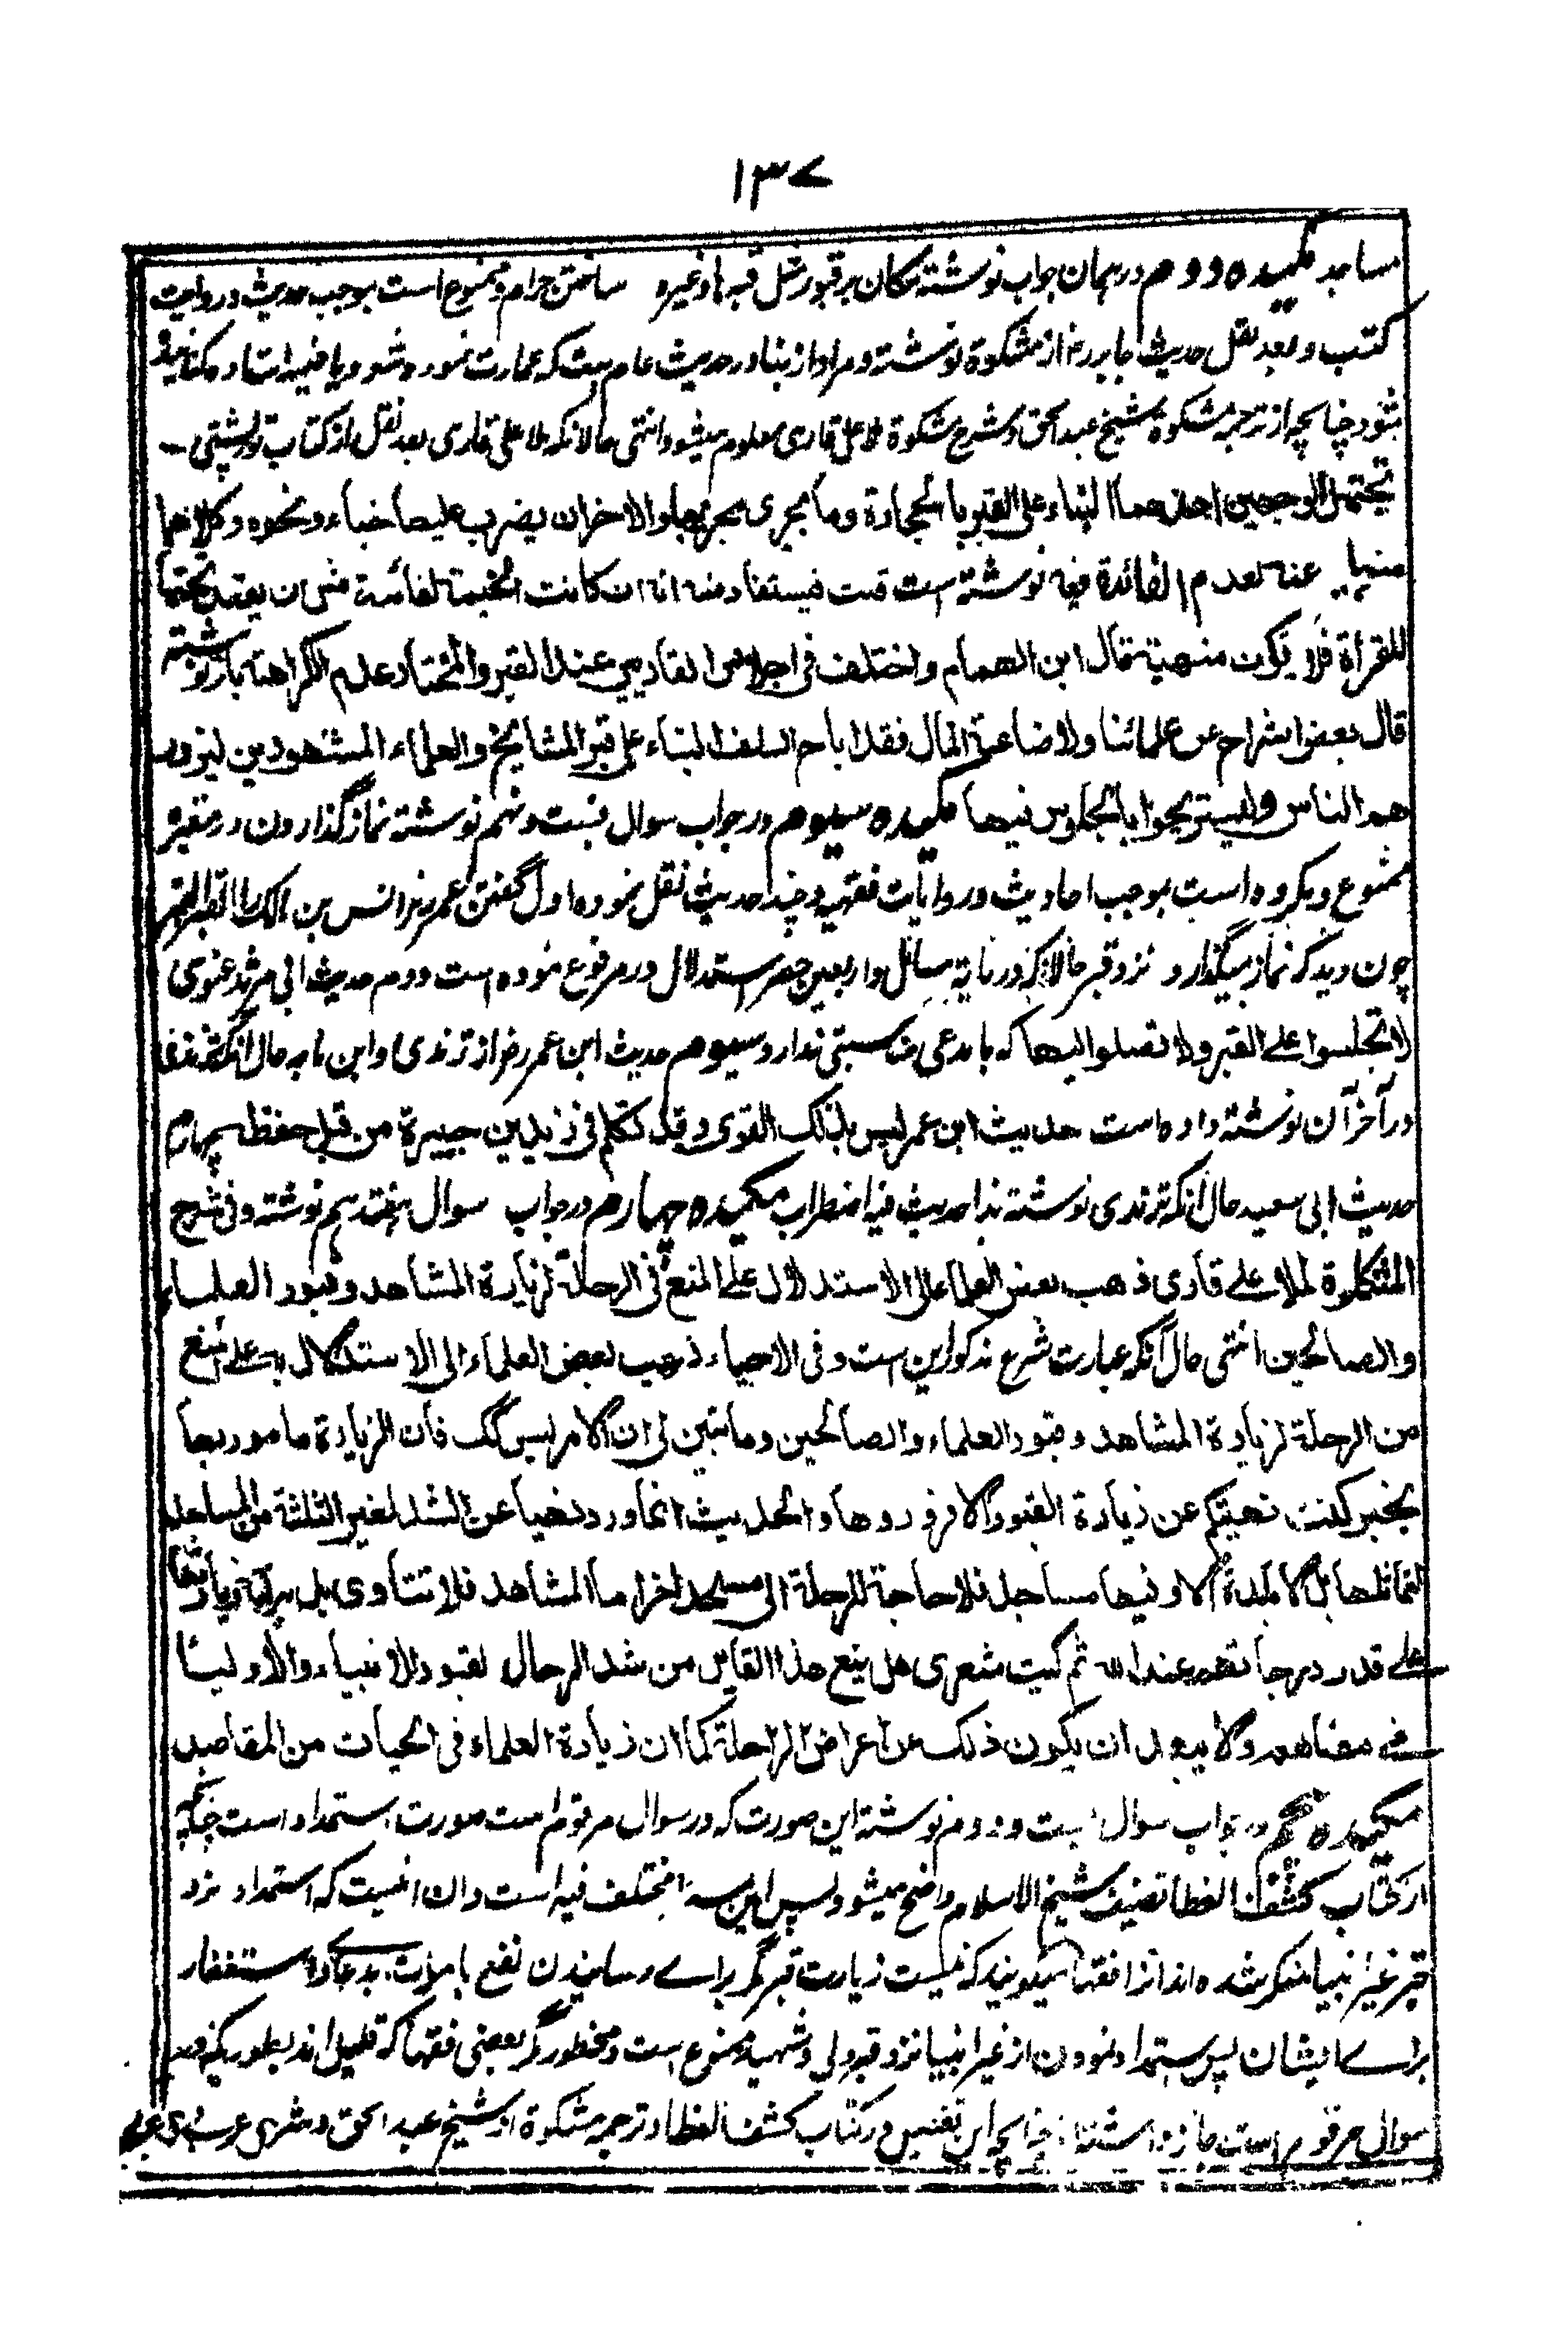 ۱۳۷
مساجد مکیده دوم در همان جواب نوشته مکان بر قبور مثل قبه ها وغیره ساختن حرام و ممنوع است بموجب حدیث و روایت
کتب و بعد نقل حدیث جابر رض از مشکوة نوشته و مراد از بنا در حدیث عام ست که عمارت نموده شود و یا خیمه استاده کنانیده
شود چنانچه از ترجمه مشکوة شیخ عبد الحق و شرح مشکوة ملا علی قاری معلوم میشود انتهی حالانکه ملا علی قاری بعد نقل از کتاب تورپشتی
یحتمل الوجهین احدهما البناء علی القبر بالحجارة وما یجری مجریها والاخر ان یضرب علیها خباء ونحوه وکلاهما
منهی عنه لعدم الفائدة فیه نوشته است قلت فیستفاد منه انه ان کانت الخیمة لفائدة مثل ان یقعد تحتها
للقراة فلا یکون منهیة قال ابن الهمام واختلف فی اجلاس القاریین عند القبر والمختار عدم الکراهة باز نوشته
قال بعض الشراح من علمائنا ولاضاعة المال فقد اباح السلف البناء علی قبر المشایخ والعلماء المشهورین لیزور
هم الناس ولیستریحوا بالجلوس فیها مکیده سیوم در جواب سوال بست و نهم نوشته نماز گذاردن در مقبره
ممنوع و مکروه است بموجب احادیث و روایات فقهیه و چند حدیث نقل نموده اول گفتن عمر رض انس بن مالک را القبر القبر
چون دید که نماز میگذارد نزد قبر حالانکه در مایة مسائل و اربعین حصر استدلال در مرفوع نموده است دوم حدیث ابی مرثد غنوی
لا تجلسوا علی القبر ولا تصلوا الیها که با مدعی مناسبتی ندارد سیوم حدیث ابن عمر رض از ترمذی و ابن ماجه حال آنکه ترمذی
در آخر آن نوشته داده است حدیث ابن عمر لیس بذلک القوی وقد تکلم فی زید بن جبیرة من قبل حفظه چهارم
حدیث ابی سعید حال آنکه ترمذی نوشته هذا حدیث فیه اضطراب مکیده چهارم در جواب سوال هفتدهم نوشته وفی شرح
المشکوة لملا علی قاری ذهب بعض العلماء الی الاستدلال علی المنع فی الرحلة لزیارة المشاهد وقبور العلماء
والصالحین انتهی حال آنکه عبارت شرح مذکور این است وفی الاحیاء ذهب بعض العلماء الی الاستدلال به علی المنع
من الرحلة لزیارة المشاهد وقبور العلماء والصالحین وما تبین لی ان الامر لیس کک فان الزیارة مامور بها
بخبر کنت نهیتکم عن زیارة القبور الا فزوروها والحدیث انما ورد نهیا عن الشد لغیر الثلثة من المساجد
لتماثلها بل لا بلدة الا وفیها مساجد فلا حاجة للرحلة الی مسجد اخر اما المشاهد فلا تتساوی بل برکة زیارتها
علی قدر درجاتهم عند الله ثم لیت شعری هل یمنع هذا القایل من شد الرحال لقبور الانبیاء والاولیا
فی معناهم ولا یبعد ان یکون ذلک من اغراض الراحلة کما ان زیارة العلماء فی الحیات من المقاصد
مکیده پنجم در جواب سوال بست و دوم نوشته این صورت که در سوال مرقوم است صورت استمداد است چنانچه
از کتاب کشف الغطا تصنیف شیخ الاسلام واضح میشود پس این مسئله مختلف فیه است وان اینست که استمداد نزد
قبر غیر انبیا منکر شده اند انرا فقها میگویند که نیست زیارت قبر مگر برای رسانیدن نفع باموات بدعا و استغفار
برای ایشان پس استمداد نمودن از غیر انبیا نزد قبر ولی و شهید ممنوع است و محظور مگر بعضی فقها که قلیل اند بطوریکه در
سوال مرقوم است جایز داشته اند چنانچه این تفصیل در کتاب کشف الغطا و ترجمه مشکوة از شیخ عبد الحق و شرح عربی